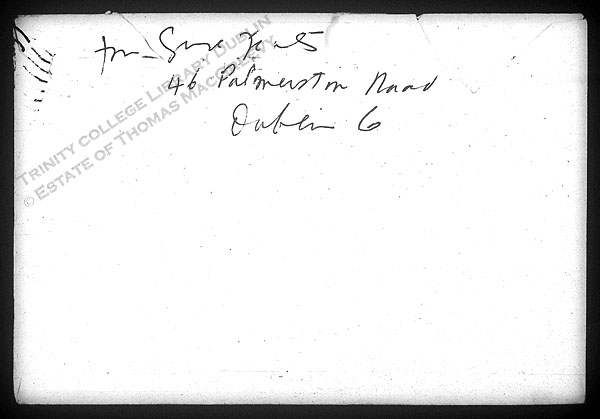 from
46 Palmerston Road
Dublin 6
TRINITY COLLEGE LIBRARY DUBLIN
© ESTATE OF THOMAS MACGREEVY